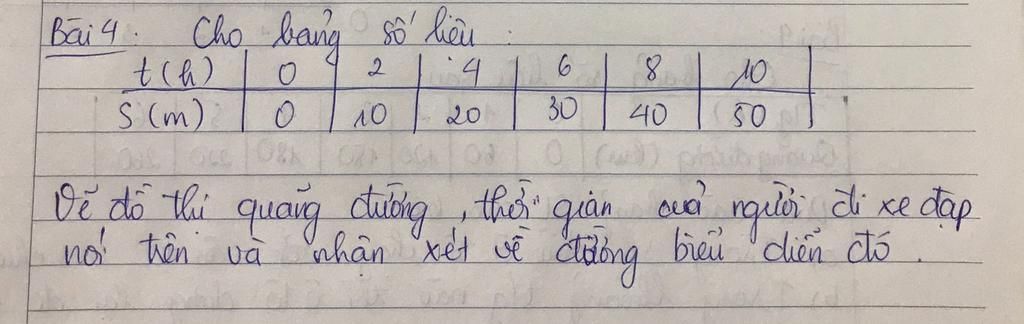 Bài 4: Cho bảng số liệu:
t(h) 0 2 4 6 8 10
S(m) 0 10 20 30 40 50
Vẽ đồ thị quãng đường, thời gian của người đi xe đạp
nói trên và nhận xét về đường biểu diễn đó.